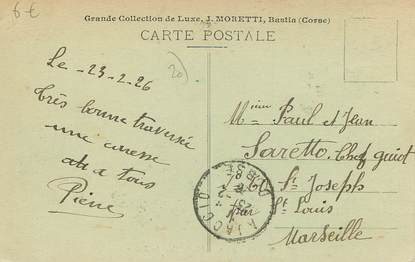 6€
Grande Collection de Luxe, J. MORETTI, Bastia (Corse)
CARTE POSTALE
20
Le - 23-2-26
Très bonne traversée
une caresse
à tous
Pierre
Paul et Jean
Saretto, Chef
St Joseph
par St Louis
Marseille
AJACCIO